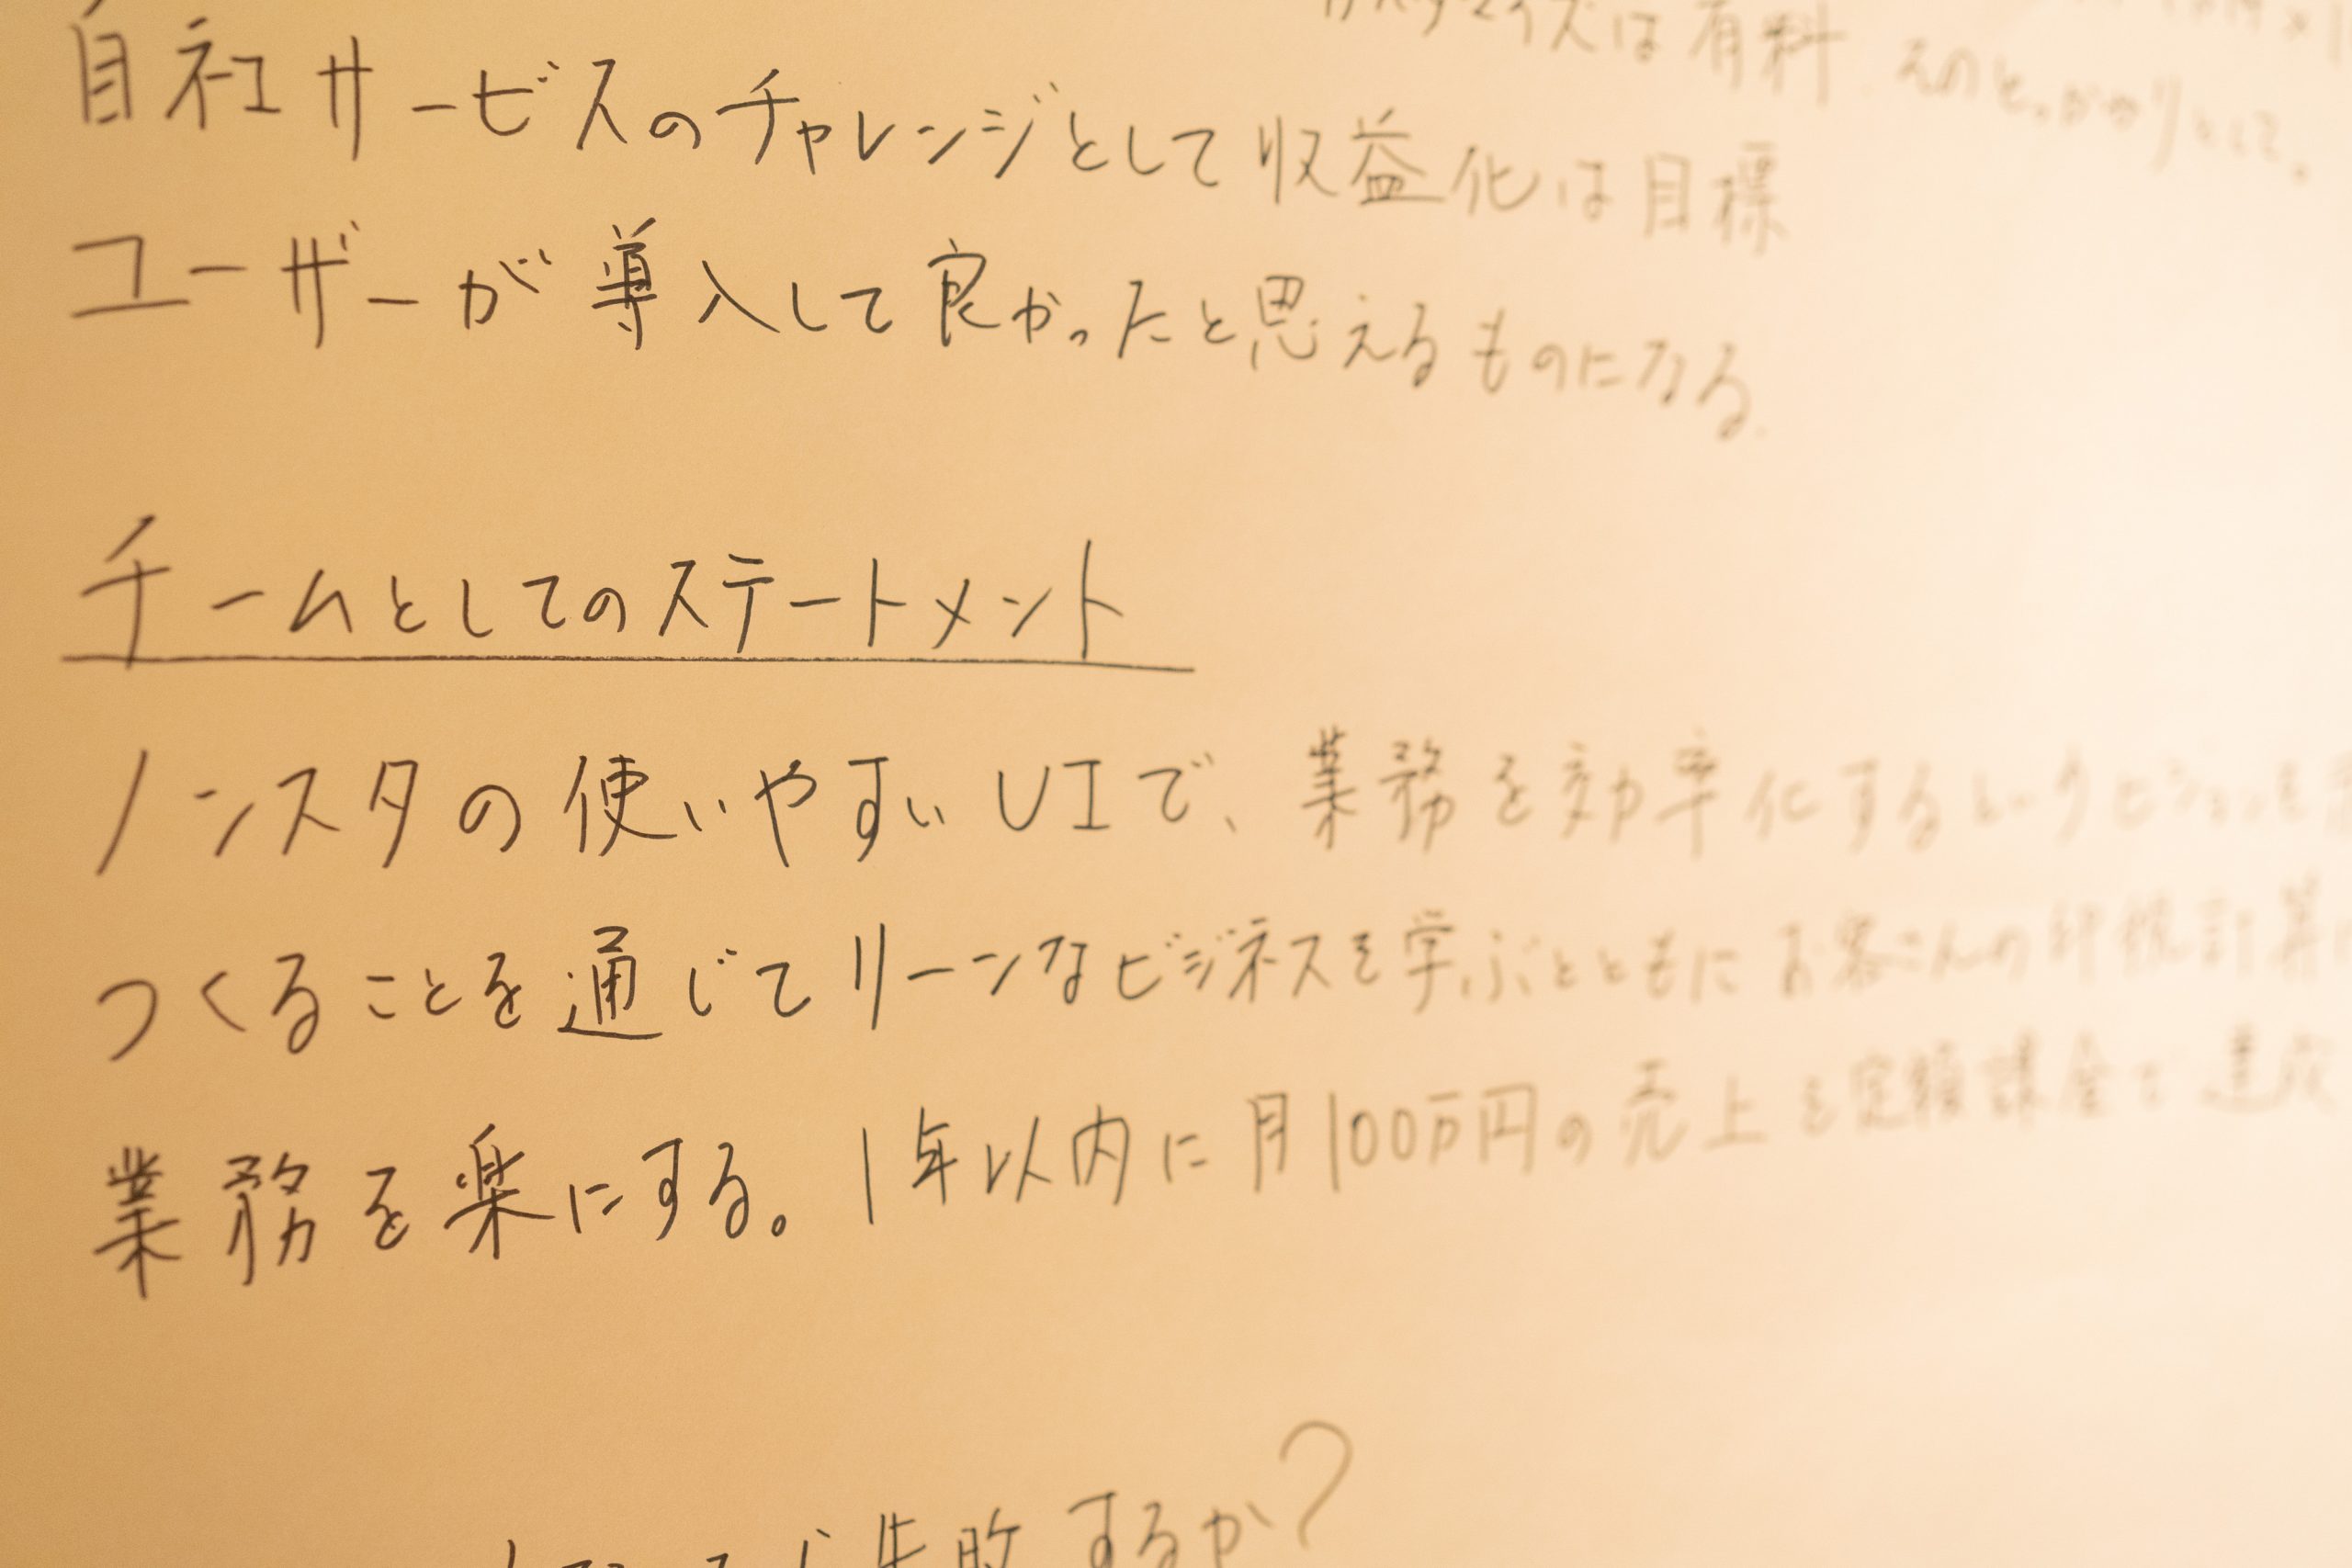 カスタマイズは有料.そのとっかかりとして。
自社サービスのチャレンジとして収益化は目標
ユーザーが導入して良かったと思えるものになる.
チームとしてのステートメント
ノンスタの使いやすいUIで、業務を効率化するというビジョンを
つくることを通じてリーンなビジネスを学ぶとともにお客さんの
業務を楽にする。1年以内に月100万円の売上を定額課金で達成
失敗するか?